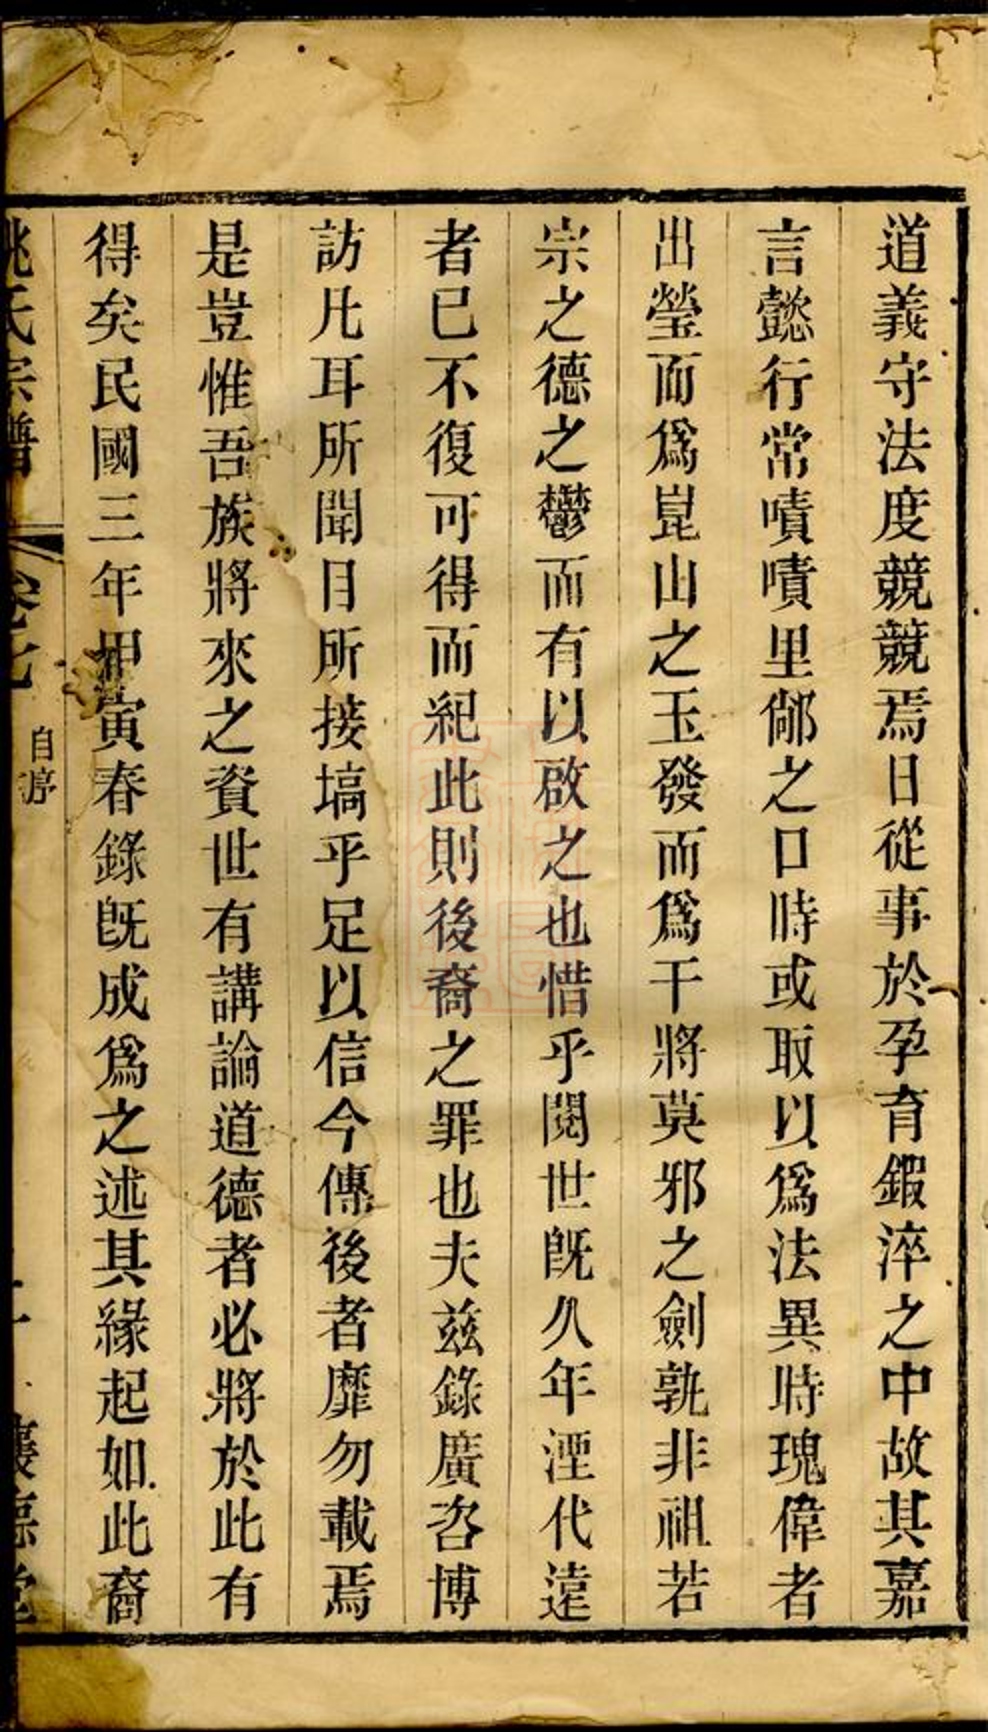 道義守法度競競焉日從事於孕育鍜淬之中故其嘉
言懿行常嘖嘖里鄰之口時或取以爲法異時瑰偉者
出瑩而爲崑山之玉發而爲干將莫邪之劍孰非祖若
宗之德之鬱而有以啟之也惜乎閱世旣久年湮代遠
者已不復可得而紀此則後裔之罪也夫兹錄廣咨博
訪凡耳所聞目所接塙乎足以信今傳後者靡勿載焉
是豈惟吾族將來之資世有講論道德者必將於此有
得矣民國三年甲寅春錄旣成爲之述其緣起如此裔
姚氏宗譜 卷七 自序